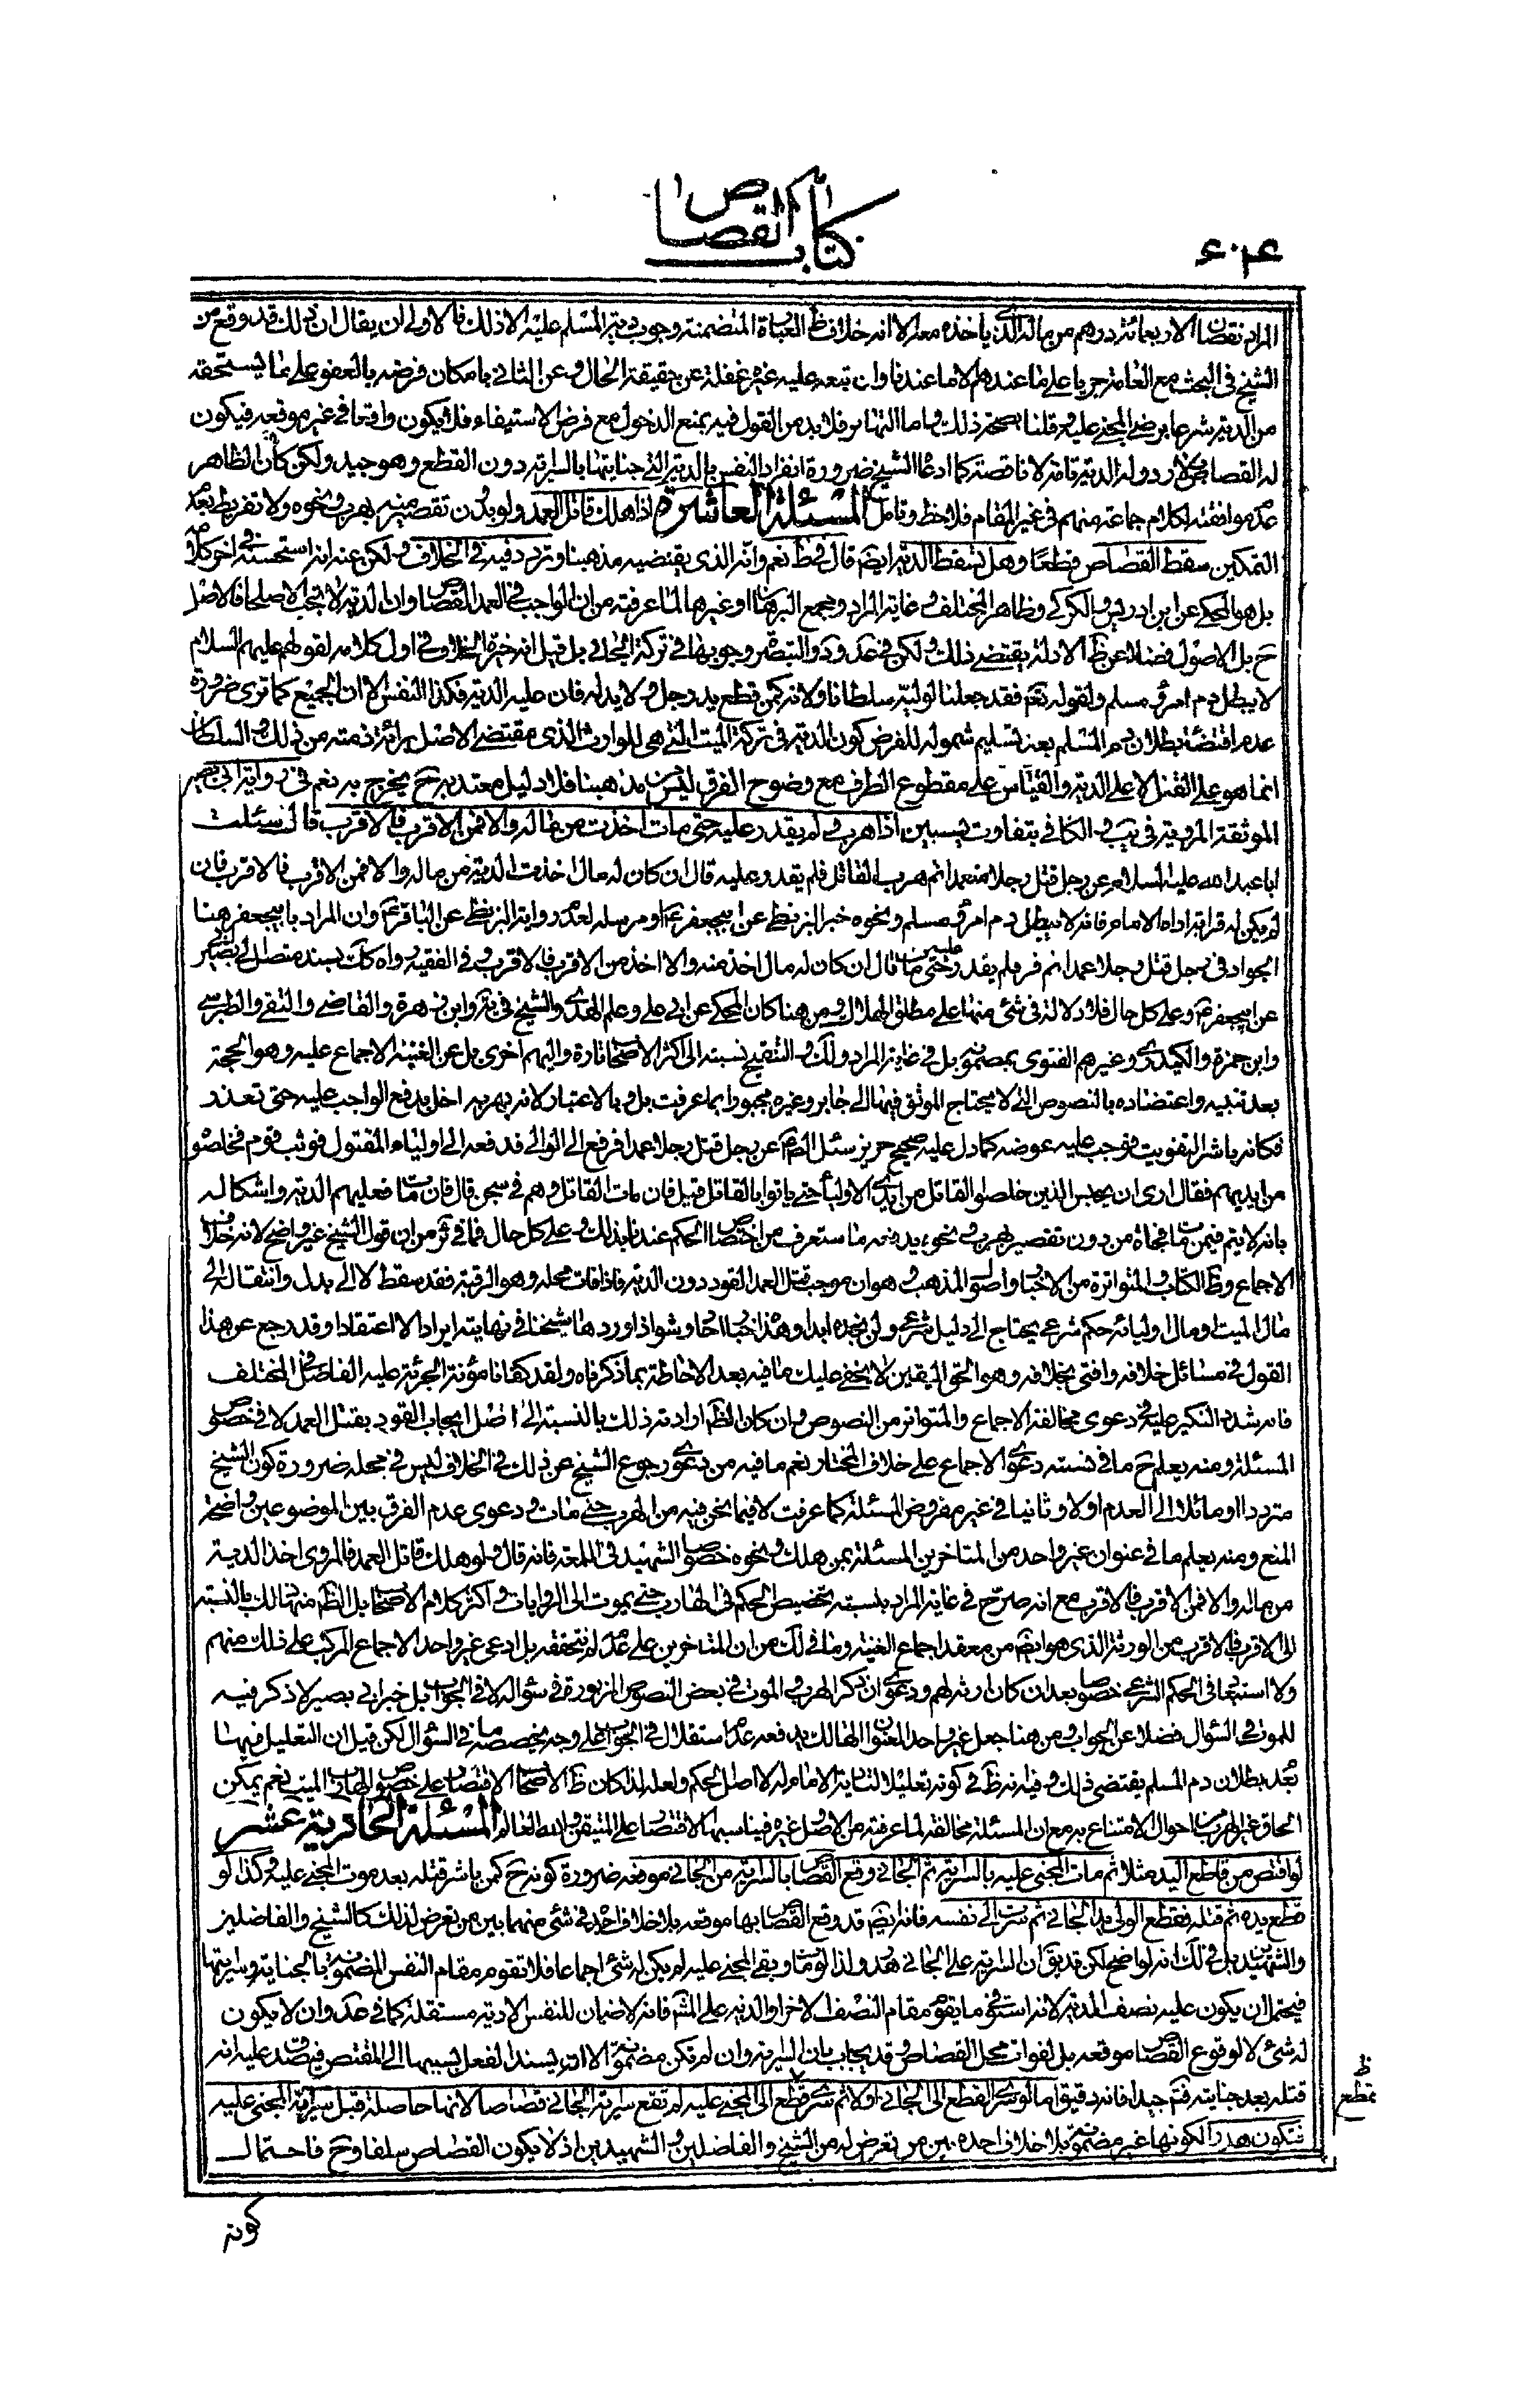 كتاب القصاص
٤٠٦
المراد نقصان الاربعمائة درهم من ماله الذى ياخذه معه الا انه خلاف ظ العبارة المتضمنة وجوب دية المسلم عليه الا ذلك فالاولى ان يقال ان ذلك قد وقع من
الشيخ فى البحث مع العامة جريا على ما عندهم لا ما عندنا وان تبعه عليه غيره غفلة عن حقيقة الحال وعن الثانى بامكان فرضه بالعفو على ما يستحقه
من الدية شرعا برضى المجنى عليه وقلنا بصحة ذلك واما فلابد من القول فيه بمنع الدخول مع فرض الاستيفاء فلا يكون واقعا فى غير موقعه فيكون
له القصاص بلا رد وله الدية تامة لا ناقصة كما ادعا الشيخ ضرورة انفراد النفس بالدية التى جنايتها بالسراية دون القطع وهو جيد ولكن كان الظاهر
عدم موافقته لكلام جماعة منهم فى غير المقام فلاحظ وتامل المسئلة العاشرة اذا هلك قاتل العمد ولو بدون تقصير منه بهرب ونحوه ولا تفريط بعد
التمكين سقط القصاص قطعا وهل تسقط الدية ايضا قال فى ط نعم وانه الذى يقتضيه مذهبنا وتردد فيه فى الخلاف ولكن عنه انه استحسنه فى اخر كلامه
بل هو المحكى عن ابن ادريس والكركى وظاهر المختلف وغاية المراد ومجمع البرهان او غيرها لما عرفته من ان الواجب فى العمد القصاص وان الدية لا تجب الا صلحا فالاصل
ح بل الاصول فضلا عن ظ الادلة يقتضى ذلك ولكن فى عد ود والتبصرة وجوبها فى تركة الجانى بل قيل انه خيرة الخلاف فى اول كلامه لقولهم عليهم السلام
لا يبطل دم امرء مسلم ولقوله تعم فقد جعلنا لوليه سلطانا ولانه كمن قطع يد رجل ولا يد له فان عليه الدية فكذا النفس الا ان الجميع كما ترى ضرورة
عدم اقتضاء بطلان دم المسلم بعد تسليم شموله للفرض كون الدية فى تركة الميت التى هى للوارث الذى مقتضى الاصل برائة ذمته من ذلك والسلطان
انما هو على القتل لا على الدية والقياس على مقطوع الطرف مع وضوح الفرق ليس من مذهبنا فلا دليل معتد به ح يخرج به نعم فى رواية ابى بصير
الموثقة المروية فى يب والكافى بتفاوت يسير اذا هرب ولم يقدر عليه حتى مات اخذت من ماله والا فمن الاقرب فالاقرب قال سئلت
ابا عبدالله عليه السلام عن رجل قتل رجلا متعمدا ثم هرب القاتل فلم يقدر عليه قال ان كان له مال اخذت الدية من ماله والا فمن الاقرب فالاقرب فان
لم يكن له قرابة اداه الامام فانه لا يبطل دم امرء مسلم ونحوه خبر البزنطى عن ابيجعفر ع او مرسله لعدم رواية البزنطى عن الباقر ع وان المراد بابيجعفر هنا
الجواد فى رجل قتل رجلا عمدا ثم فر فلم يقدر عليه حتى مات قال ان كان له مال اخذ منه والا اخذ من الاقرب فالاقرب وفى الفقيه رواه كك بسند متصل الى ابى بصير
عن ابيجعفر ع وعلى كل حال فلا دلالة فى شئ منها على مطلق الهلاك ومن هنا كان المحكى عن ابى على وعلم الهدى والشيخ فى ية وابن زهرة والقاضى والتقى والطبرسى
وابن حمزة والكيدرى وغيرهم الفتوى بمضمونه بل فى غاية المراد ولك والتنقيح نسبته الى اكثر الاصحاب تارة واليهم اخرى بل عن الغنية الاجماع عليه وهو الحجة
بعد تبينه واعتضاده بالنصوص التى لا يحتاج الموثق فيها الى جابر وغيره مجبور بما عرفت بل وبالاعتبار لانه بهربه اخل بدفع الواجب عليه حتى تعذر
فكانه باشر التفويت فوجب عليه عوضه كما دل عليه صحيح حريز سئل الصم عن رجل قتل رجلا عمدا فرفع الى الوالى فدفعه الى اولياء المقتول فوثب قوم فخلصوا
من ايديهم فقال ارى ان يحبس الذين خلصوا القاتل من ايدى الاولياء حتى ياتوا بالقاتل قيل فان مات القاتل وهم فى سجن قال فان مات فعليهم الدية واشكاله
بانه لا يتم فيمن مات فجاة من دون تقصير بهرب ونحوه يدفعه ما ستعرف من اختصاص الحكم عندنا بذلك وعلى كل حال فما فى ئر من ان قول الشيخ غير واضح لانه خلاف
الاجماع وظ الكتاب والمتواترة من الاخبار واصول المذهب وهو ان موجب قتل العمد القود دون الدية فاذا فات محله وهو الرقبة فقد سقط لا الى بدل وانتقاله الى
مال الميت او مال اوليائه حكم شرعى يحتاج الى دليل شرعى ولن نجده ابدا وهذه اخبار احاد شواذ اوردها شيخنا فى نهايته ايرادا لا اعتقادا وقد رجع عن هذا
القول فى مسائل خلافه وافتى بخلافه وهو الحق اليقين لا يخفى عليك ما فيه بعد الاحاطة بما ذكرناه ولقد كفانا مؤنة الجرئة عليه الفاضل فى المختلف
فانه شدد النكير عليه فى دعوى مخالفة الاجماع والمتواتر من النصوص وان كان الظ ارادته ذلك بالنسبة الى اصل ايجاب القود بقتل العمد لا فى خصوص
المسئلة ومنه يعلم ح ما فى نسبته دعوى الاجماع على خلاف المختار نعم ما فيه من دعوى رجوع الشيخ عن ذلك فى الخلاف ليس فى محله ضرورة كون الشيخ
مترددا او مائلا الى العدم اولا وثانيا فى غير مفروض المسئلة كما عرفت لا فيما نحن فيه من الهرب حتى مات ودعوى عدم الفرق بين الموضوعين واضحة
المنع ومنه يعلم ما فى عنوان غير واحد من المتاخرين المسئلة بمن هلك ونحوه خصوصا الشهيد فى اللمعة فانه قال ولو هلك قاتل العمد فالمروى اخذ الدية
من ماله والا فمن الاقرب فالاقرب مع انه صرح فى غاية المراد بنسبة تخصيص الحكم فى الهارب حتى يموت الى الروايات واكثر كلام الاصحاب بل الظ منهم ذلك بالنسبة
الى الاقرب فالاقرب من الورثة الذى هو ايضا من معقد اجماع الغنية وما فى لك من ان المتاخرين على عدمه لم نتحققه بل ادعى غير واحد الاجماع المركب على ذلك منهم
ولا استبعاد فى الحكم الشرعى خصوصا بعد ان كان ارثه لهم ودعوى ان ذكر الهرب والموت فى بعض النصوص المزبورة فى سؤاله لا فى الجواب بل خبر ابى بصير لا ذكر فيه
للموت فى السؤال فضلا عن الجواب ومن هنا جعل غير واحد العنوان الهالك يدفعه عدم استقلال فى الجواب على وجه يخصصه ما فى السؤال لكن قيل ان التعليل فيها
بعد بطلان دم المسلم يقتضى ذلك وفيه نظر فى كونه تعليلا لتادية الامام له لا اصل الحكم ولعله لذا كان ظ الاصحاب الاقتصار على خصوص الهارب الميت نعم يمكن
الحاق غير الهرب من احوال الامتناع به مع ان المسئلة مخالفة لما عرفته من الاصل وغيره فيناسبها الاقتصار على المتيقن والله العالم المسئلة الحادية عشر
لو اقتص من قاطع اليد مثلا ثم مات المجنى عليه بالسراية ثم الجانى وقع القصاص بالسراية من الجانى موقعه ضرورة كونه ح كمن باشر قتله بعد موت المجنى عليه وكذا لو
قطع يده ثم قتله فقطع الولى يد الجانى ثم سرت الى نفسه فانه ايضا قد وقع القصاص بها موقعه بلا خلاف اجده فى شئ منهما بين من تعرض لذلك كالشيخ والفاضلين
والشهيدين بل فى لك انه لواضح لكن قد يق ان السراية على الجانى هدر ولذا لو مات وبقى المجنى عليه لم يكن له شئ اجماعا فلا تقوم مقام النفس المضمونة بالجناية وسرايتها
فيحتمل ان يكون عليه نصف الدية لانه استوفى ما يقوم مقام النصف الاخر او الدية على الشم فانه لا ضمان للنفس الا دية مستقلة كما فى حد وان لا يكون
له شئ لا لوقوع القصاص موقعه بل لفوات محل القصاص وقد يجاب بان السراية وان لم تكن مضمونة الا انه يسند الفعل بسببها الى المقتص فيصدق عليه انه
قتله بعد جنايته فتم جيدا فانه دقيق اما لو سرى القطع الى الجانى اولا ثم سرى قطع الى المجنى عليه لم تقع سراية الجانى قصاصا لانها حاصلة قبل سراية المجنى عليه
فتكون هدرا لكونها غير مضمونة بلا خلاف اجده بين من تعرض له من الشيخ والفاضلين والشهيدين اذ لا يكون القصاص سلفا وح فاحتمال
يقطع ظ
كونه